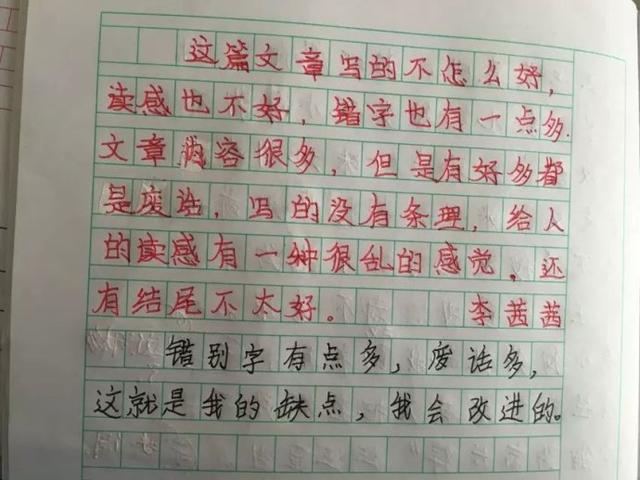 这篇文章写的不怎么好，
读感也不好，错字也有一点多.
文章内容很多，但是有好多都
是废话，写的没有条理，给人
的读感有一种很乱的感觉，还
有结尾不太好。 李茜茜
错别字有点多，废话多，
这就是我的缺点，我会改进的。